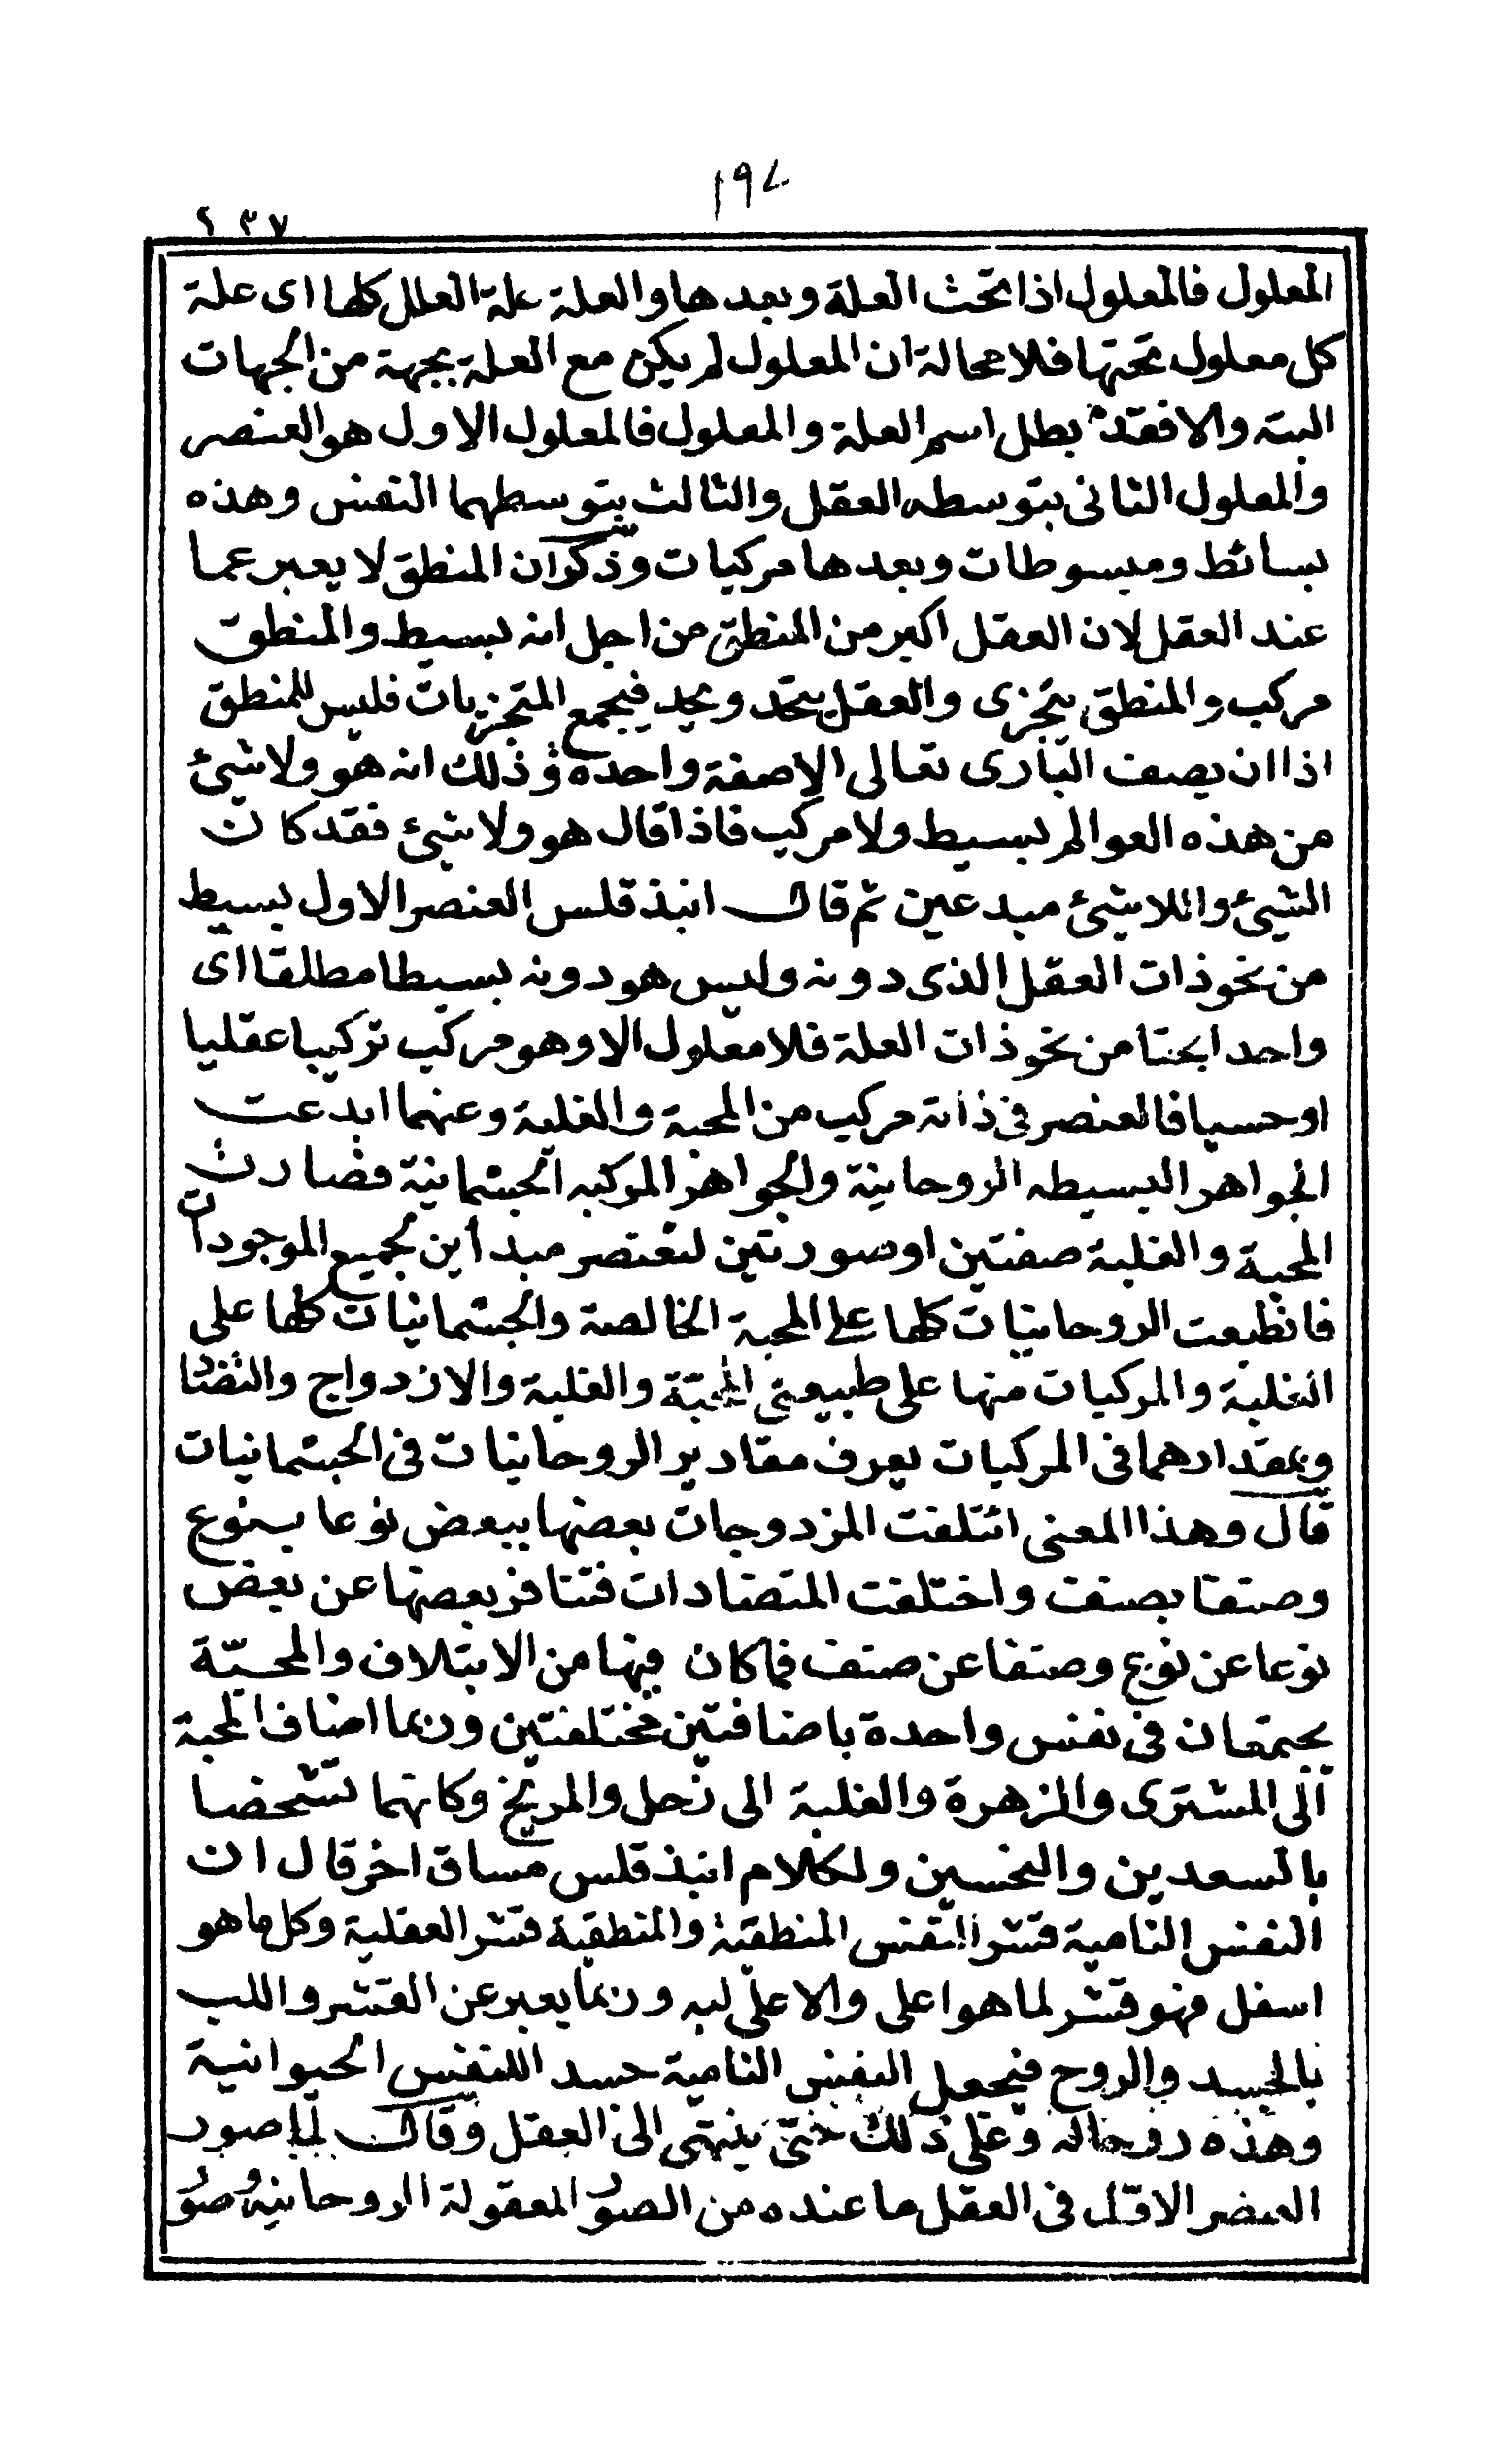 ١٩٧
٢٣٧
المعلول فالمعلول اذا تحت العلة وبعدها والعلة علة العلل كلها اى علة
كل معلول تحتها فلا محالة ان المعلول لم يكن مع العلة بجهة من الجهات
البتة والا فقد بطل اسم العلة والمعلول فالمعلول الاول هو العنصر
والمعلول الثانى بتوسطه العقل والثالث بتوسطهما النفس وهذه
بسائط ومبسوطات وبعدها مركبات وذكر ان المنطق لا يعبر عما
عند العقل لان العقل اكبر من المنطق من اجل انه بسيط والمنطق
مركب والمنطق يتجزى والعقل يتحد ويحد فيجمع المتجزيات فليس للمنطق
اذا ان يصف البارى تعالى الا صفة واحدة وذلك انه هو ولا شئ
من هذه العوالم بسيط ولا مركب فاذا قال هو ولا شئ فقد كان
الشئ واللاشئ مبدعين ثم قال انبذقلس العنصر الاول بسيط
من نحو ذات العقل الذى دونه وليس هو دونه بسيطا مطلقا اى
واحدا بحتا من نحو ذات العلة فلا معلول الا وهو مركب تركيبا عقليا
او حسيا فالعنصر فى ذاته مركب من المحبة والغلبة وعنهما ابدعت
الجواهر البسيطه الروحانية والجواهر المركبه الجسمانية فصارت
المحبة والغلبة صفتين او صورتين للعنصر مبدأين لجميع الموجودات
فانطبعت الروحانيات كلها على المحبة الخالصة والجسمانيات كلها على
الغلبة والمركبات منها على طبيعتى المحبّة والغلبة والازدواج والتضاد
وبمقدارهما فى المركبات يعرف مقادير الروحانيات فى الجسمانيات
قال وهذا المعنى ائتلفت المزدوجات بعضها ببعض نوعا بنوع
وصنفا بصنف واختلفت المتضادات فتنافر بعضها عن بعض
نوعا عن نوع وصنفا عن صنف فما كان فيها من الايتلاف والمحبّة
يجتمعان فى نفس واحدة باضافتين مختلفتين وربما اضاف المحبة
الى المشترى والزهرة والغلبة الى زحل والمريخ وكانهما تشخصا
بالسعدين والنحسين ولكلام انبذقلس مساق اخر قال ان
النفس النامية قشر النفس المنطقية والمنطقية قشر العقلية وكل ما هو
اسفل فهو قشر لما هو اعلى والاعلى لبه وربما يعبر عن القشر واللب
بالجسد والروح فيجعل النفس النامية جسد اللنفس الحيوانية
وهذه روحاله وعلى ذلك حتى ينتهى الى العقل وقال لما صور
العنصر الاوّل فى العقل ما عنده من الصور المعقولة الروحانية وصور